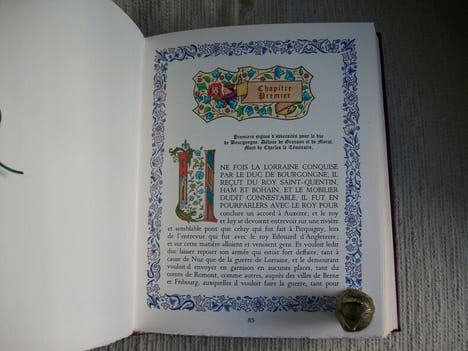 Chapitre
Premier
Premiers signes d'adversités pour le duc
de Bourgongne. Défaite de Granson et de Morat.
Mort de Charles le Téméraire.
UNE FOIS LA LORRAINE CONQUISE
PAR LE DUC DE BOURGONGNE, IL
REÇUT DU ROY SAINT-QUENTIN,
HAM ET BOHAIN, ET LE MOBILIER
DUDIT CONNESTABLE, IL FUT EN
POURPARLERS AVEC LE ROY POUR
conclure un accord à Auxerre; et le roy
et luy se devoient entrevoir sur une rivière
et semblable pont que celuy qui fut fait à Picquigny, lors
de l'entrevue qui fut avec le roy Edouard d'Angleterre;
et sur cette matière alloient et venoient gens. Et vouloit ledit
duc laisser reposer son armée qui estoit fort deffaite, tant à
cause de Nuz que de la guerre de Lorraine, et le demourant
vouloit-il envoyer en garnison en aucunes places, tant du
comte de Romont, comme autres, auprès des villes de Berne
et Fribourg, auxquelles il vouloit faire la guerre, tant pour
85